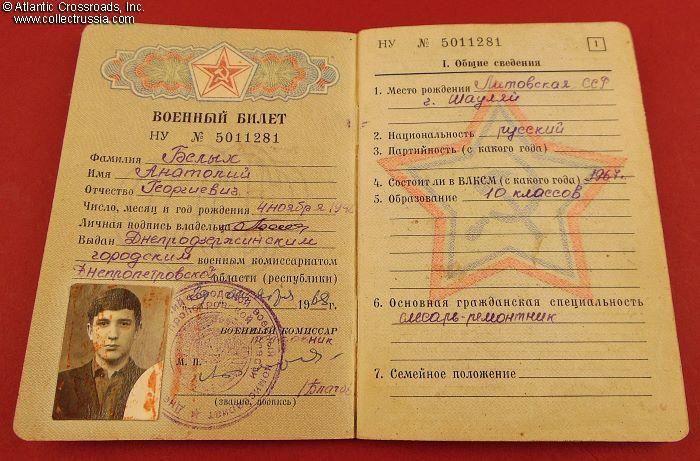 © Atlantic Crossroads, Inc.
www.collectrussia.com
ВОЕННЫЙ БИЛЕТ
НУ № 5011281
Фамилия Белых
Имя Анатолий
Отчество Георгиевич
Число, месяц и год рождения 4 ноября
Личная подпись владельца
Выдан Днепродзержинским
городским военным комиссариатом
Днепропетровской области (республики)
1968 г.
ВОЕННЫЙ КОМИССАР
М. П.
(звание, подпись)
НУ № 5011281 1
I. Общие сведения
1. Место рождения Литовская ССР
г. Шауляй
2. Национальность русский
3. Партийность (с какого года)
4. Состоит ли в ВЛКСМ (с какого года) 1967 г.
5. Образование 10 классов
6. Основная гражданская специальность
слесарь-ремонтник
7. Семейное положение